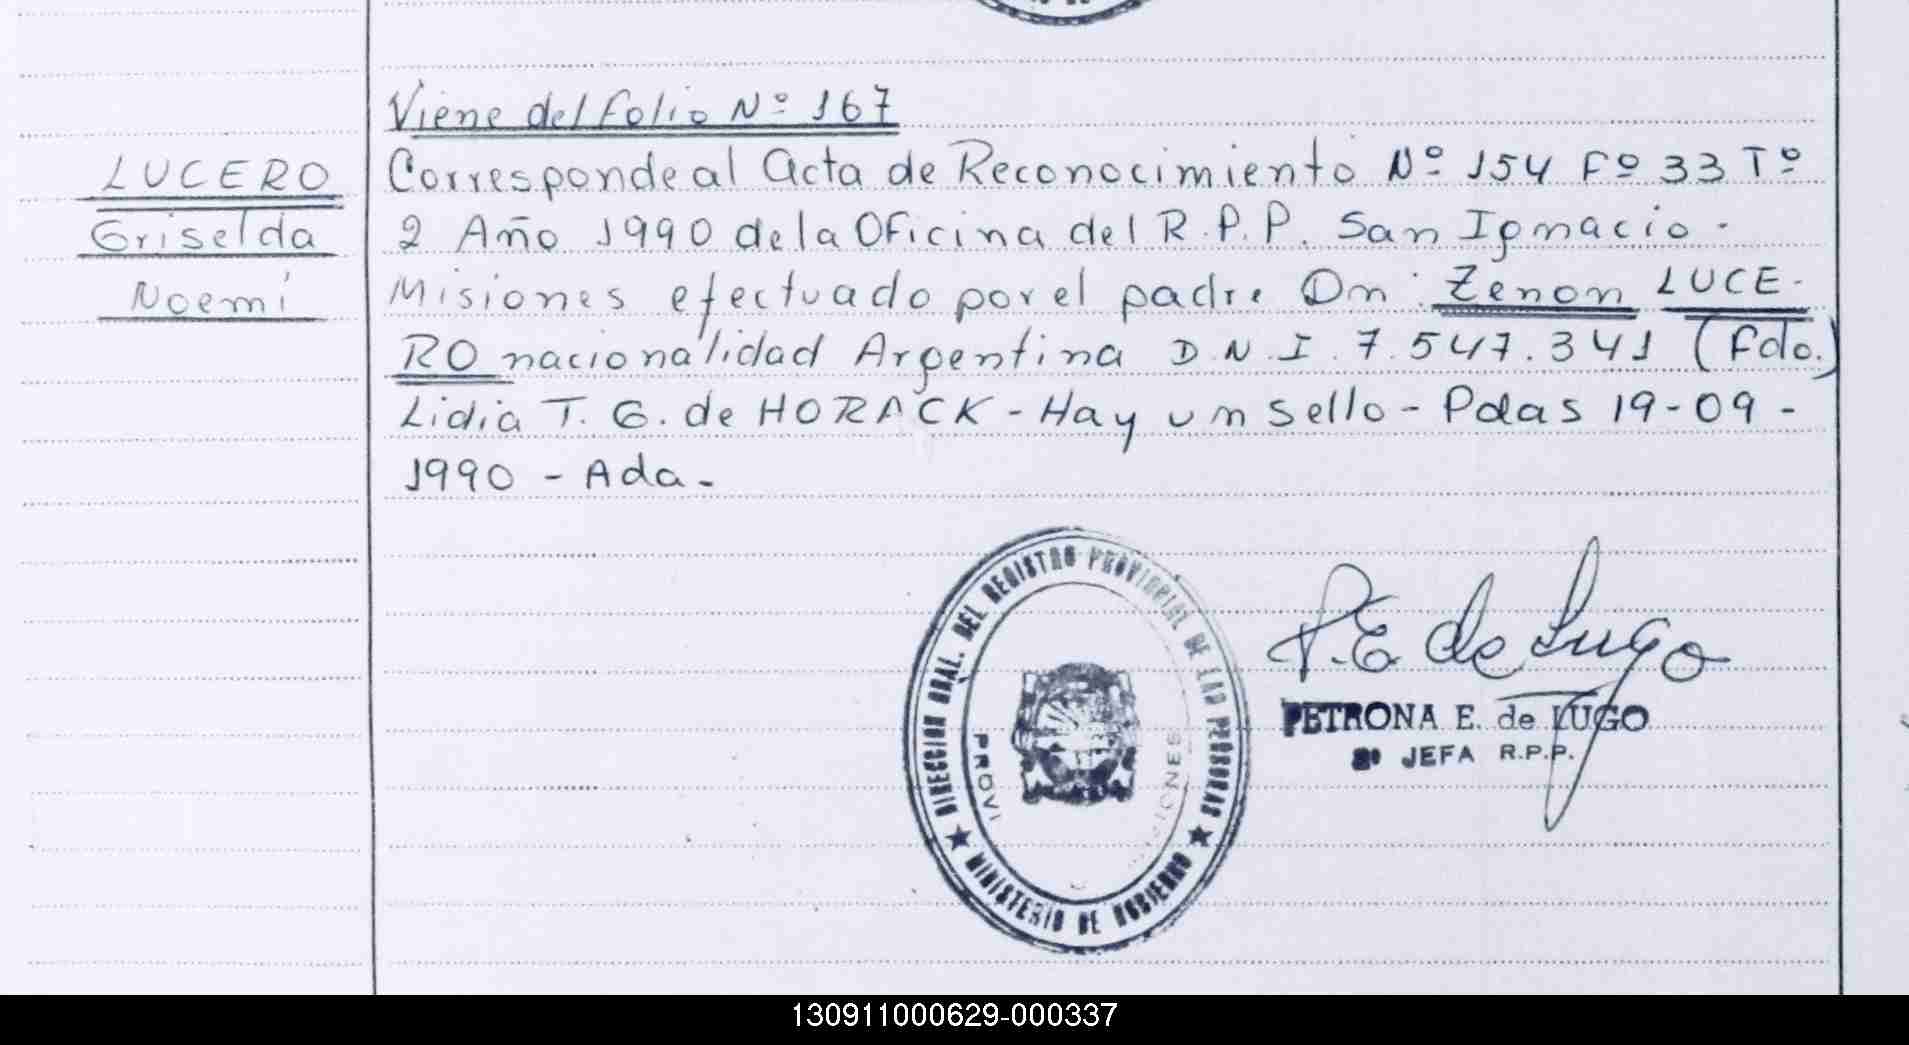 Viene del folio Nº 167
LUCERO
Griselda
Noemí
Corresponde al Acta de Reconocimiento Nº 154 Fº 33 Tº
2 Año 1990 de la Oficina del R.P.P. San Ignacio -
Misiones efectuado por el padre Dn. Zenon LUCE-
RO nacionalidad Argentina D.N.I. 7.547.341 (Fdo.)
Lidia T. G. de HORACK - Hay un sello - Pdas 19-09-
1990 - Ada.-
DIRECCION GRAL. DEL REGISTRO PROVINCIAL DE LAS PERSONAS
MINISTERIO DE GOBIERNO
P.E. de Lugo
PETRONA E. de LUGO
JEFA R.P.P.
130911000629-000337